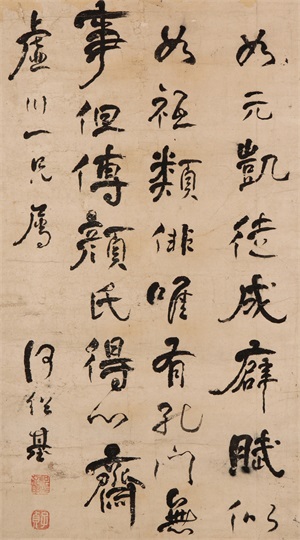 如元凱徒成癖賦似
如祗類俳唯有孔門無
事但傳顏氏得心齋
虛川一兄屬
何紹基